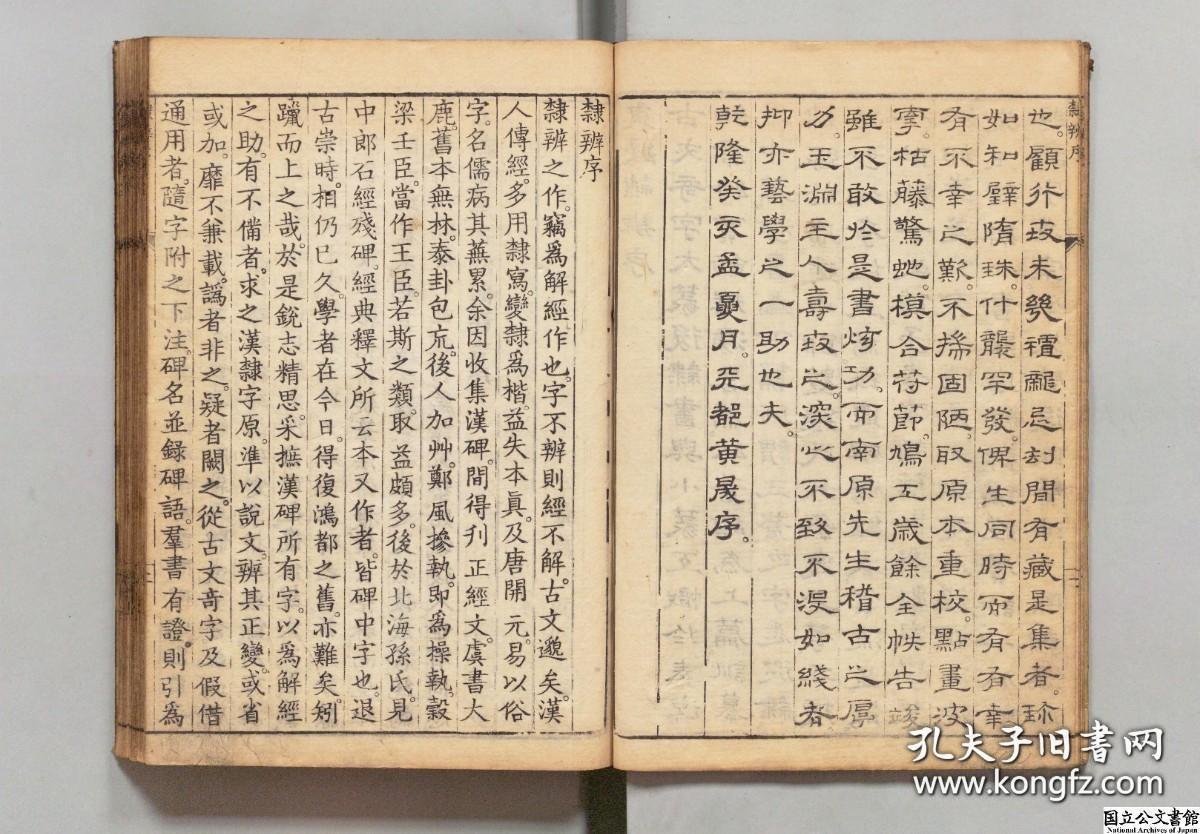 隸辨序
也。顧行世未幾。忌刻。間有藏是集者。珎
如和璧隋珠。什襲罕發。俾生同時而有有幸
有不幸之歎。不揣固陋。取原本重校。點畫波
枯藤驚虵。模合苻節。鳩工歲餘。全帙告竣
雖不敢於是書矜功。而南原先生稽古之厚
力。玉淵主人壽世之深心。不致不湮如綫者
抑亦藝學之一助也夫。
乾隆癸亥孟夏月。天都黃晟序。
隸辨序
隸辨之作。竊爲解經作也。字不辨則經不解。古文邈矣。漢
人傳經。多用隸寫。變隸爲楷。益失本眞。及唐開元。易以俗
字。名儒病其蕪累。余因收集漢碑。間得刋正經文。虞書大
鹿。舊本無林。泰卦包巟。後人加艸。鄭風摻執。即爲操執。穀
梁壬臣。當作王臣。若斯之類。取益頗多。後於北海孫氏。見
中郎石經殘碑。經典釋文所云本又作者。皆碑中字也。退
古崇時。相仍已久。學者在今日。得復鴻都之舊。亦難矣。矧
躐而上之哉。於是銳志精思。采摭漢碑所有字。以爲解經
之助。有不備者。求之漢隸字原。準以說文。辨其正變。或省
或加。靡不兼載。譌者非之。疑者闕之。從古文奇字及假借
通用者。隨字附之下注。碑名並錄碑語。羣書有證。則引爲
孔夫子旧书网
www.kongfz.com
国立公文書館
National Archives of Japan